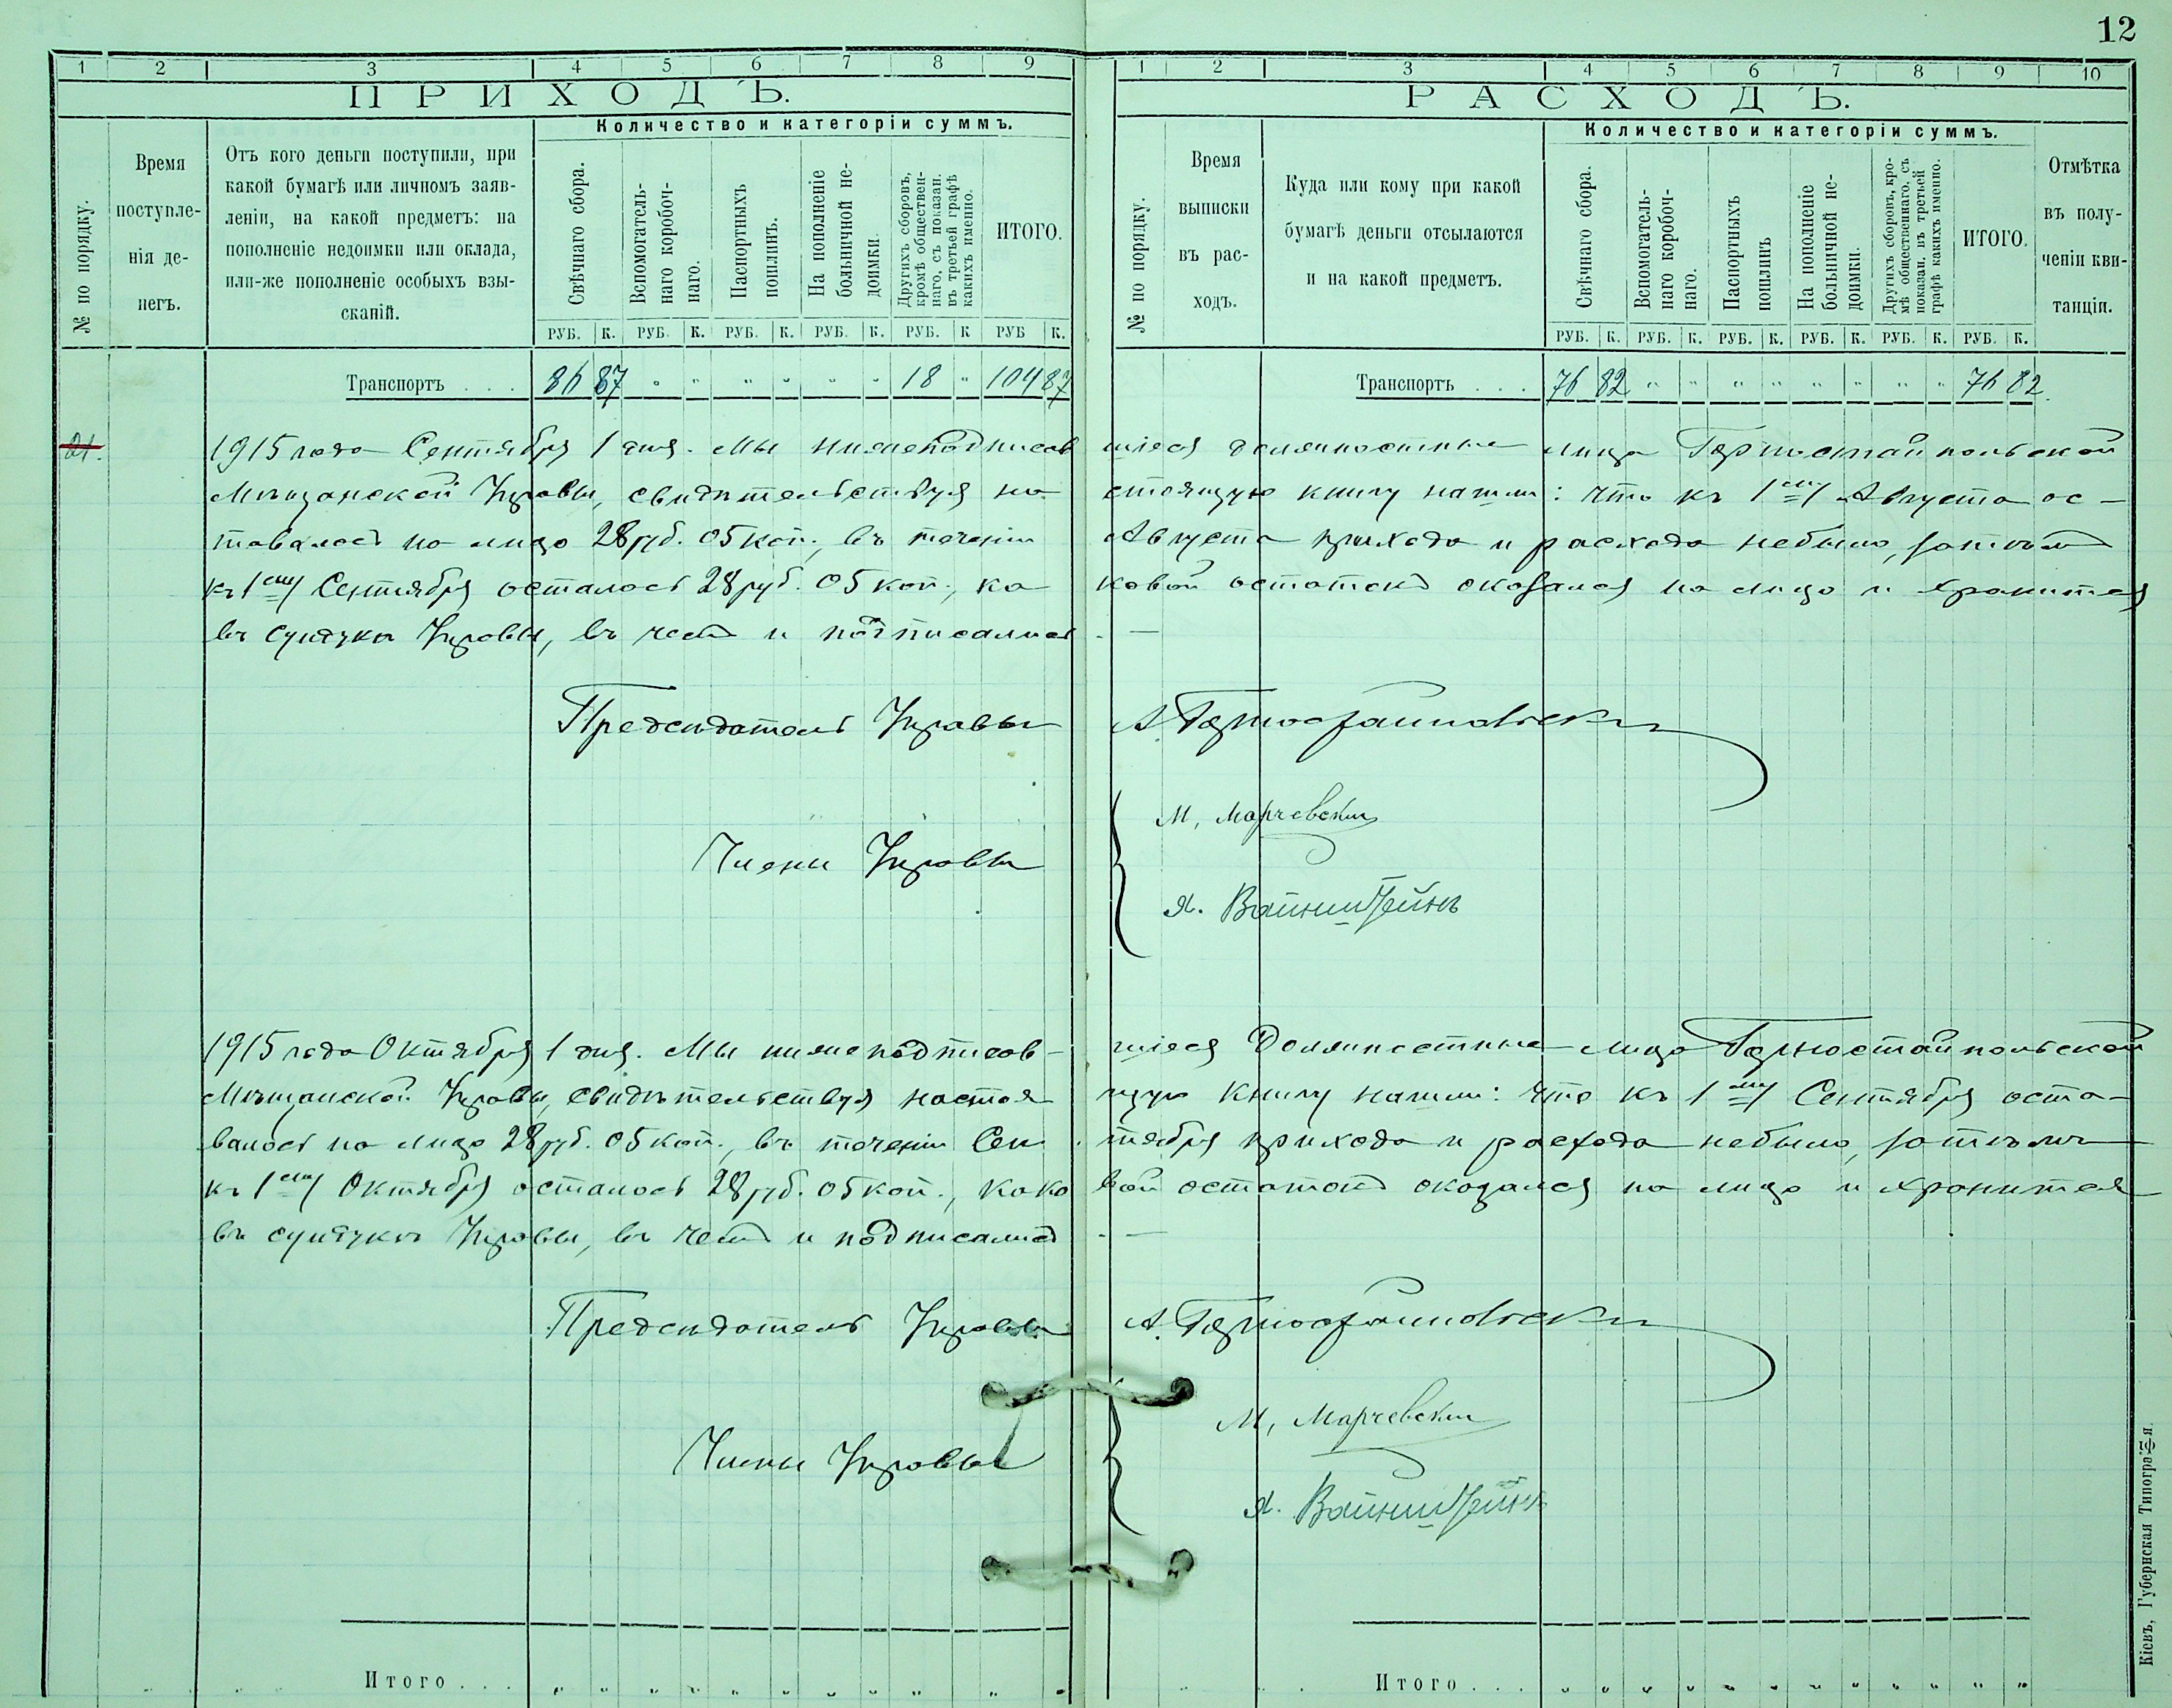 12
1 2 3 4 5 6 7 8 9
ПРИХОДЪ.
№ по порядку.
Время поступле-
нія де-
негъ.
Отъ кого деньги поступили, при
какой бумагѣ или личномъ заяв-
леніи, на какой предметъ: на
пополненіе недоимки или оклада,
или-же пополненіе особыхъ взы-
сканій.
Количество и категоріи суммъ.
Свѣчнаго сбора.
Вспомогатель-
наго коробоч-
наго.
Паспортныхъ
пошлинъ.
На пополненіе
больничной не-
доимки.
Другихъ сборовъ,
кромѣ обществен-
наго, съ показан.
въ третьей графѣ
какихъ именно.
ИТОГО.
РУБ. К. РУБ. К. РУБ. К. РУБ. К. РУБ. К РУБ К.
Транспортъ . . . 86 87 " " " " " " 18 " 104 87
1 2 3 4 5 6 7 8 9 10
РАСХОДЪ.
№ по порядку.
Время
выписки
въ рас-
ходъ.
Куда или кому при какой
бумагѣ деньги отсылаются
и на какой предметъ.
Количество и категоріи суммъ.
Свѣчнаго сбора.
Вспомогатель-
наго коробоч-
наго.
Паспортныхъ
пошлинъ
На пополненіе
больничной не-
доимки.
Другихъ сборовъ, кро-
мѣ общественнаго, съ
показан. въ третьей
графѣ какихъ именно.
ИТОГО.
Отмѣтка
въ полу-
ченіи кви-
танціи.
РУБ. К. РУБ. К. РУБ. К. РУБ. К. РУБ. К. РУБ. К.
Транспортъ . . . 76 82 " " " " " " " " 76 82.
21.
1915 года Сентября 1 дня. Мы нижеподписав шіеся должностные лица Горностайпольской
Мѣщанской Управы, свидѣтельствуя на стоящую книгу нашли: что къ 1му Августа ос-
тавалось на лицо 28 руб. 05 коп., въ теченіи Августа прихода и расхода небыло, затѣмъ
къ 1му Сентября осталось 28 руб. 05 коп., ка ковой остатокъ оказался на лицо и хранится
въ сундукѣ Управы, въ чемъ и подписались. —
Предсѣдатель Управы А. Горностайпольскій
Члены Управы
М, Марчевскій
Я. Вайнштейнъ
1915 года Октября 1 дня. Мы нижеподписав- шіеся Должностные лица Горностайпольской
Мѣщанской Управы, свидѣтельствуя настоя щую книгу нашли: что къ 1му Сентября оста-
валось на лицо 28 руб. 05 коп., въ теченіи Сен тября прихода и расхода небыло, затѣмъ
къ 1му Октября осталось 28 руб. 05 коп., како вой остатокъ оказался на лицо и хранится
въ сундукѣ Управы, въ чемъ и подписались. —
Предсѣдатель Управы А. Горностайпольскій
Члены Управы
М, Марчевскій
Я. Вайнштейнъ
Итого . . . " " " " " " " " " " " "
Итого . . . " " " " " " " " " " " "
Кіевъ, Губернская Типографія.